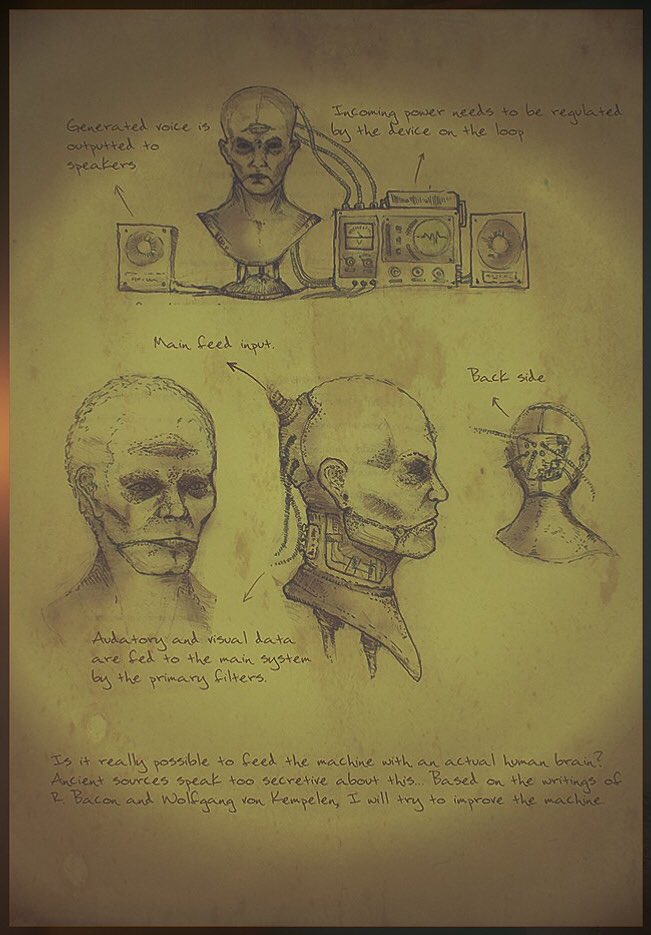 Generated voice is
outputted to
speakers
Incoming power needs to be regulated
by the device on the loop
Main feed input.
Back side
Audatory and visual data
are fed to the main system
by the primary filters.
Is it really possible to feed the machine with an actual human brain?
Ancient sources speak too secretive about this... Based on the writings of
R. Bacon and Wolfgang von Kempelen, I will try to improve the machine.